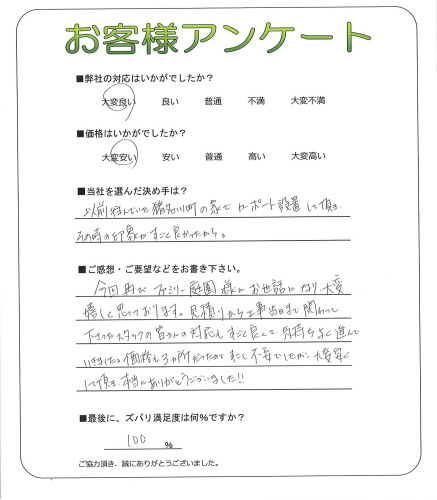 お客様アンケート
■弊社の対応はいかがでしたか？
大変良い 良い 普通 不満 大変不満
■価格はいかがでしたか？
大変安い 安い 普通 高い 大変高い
■当社を選んだ決め手は？
以前住んでいた猪名川町の家でカーポート設置して頂き
その時の印象がすごく良かったから。
■ご感想・ご要望などをお書き下さい。
今回再びファミリー庭園様にお世話になり、大変
嬉しく思っております。見積りから工事当日まで関わって
下さったスタッフの皆さんの対応もすごく良くて、気持ちよく進んで
いきました。価格も3ヵ所だったので少し不安でしたが、大変安く
して頂き、本当にありがとうございました!!
■最後に、ズバリ満足度は何%ですか？
100 %
ご協力頂き、誠にありがとうございました。